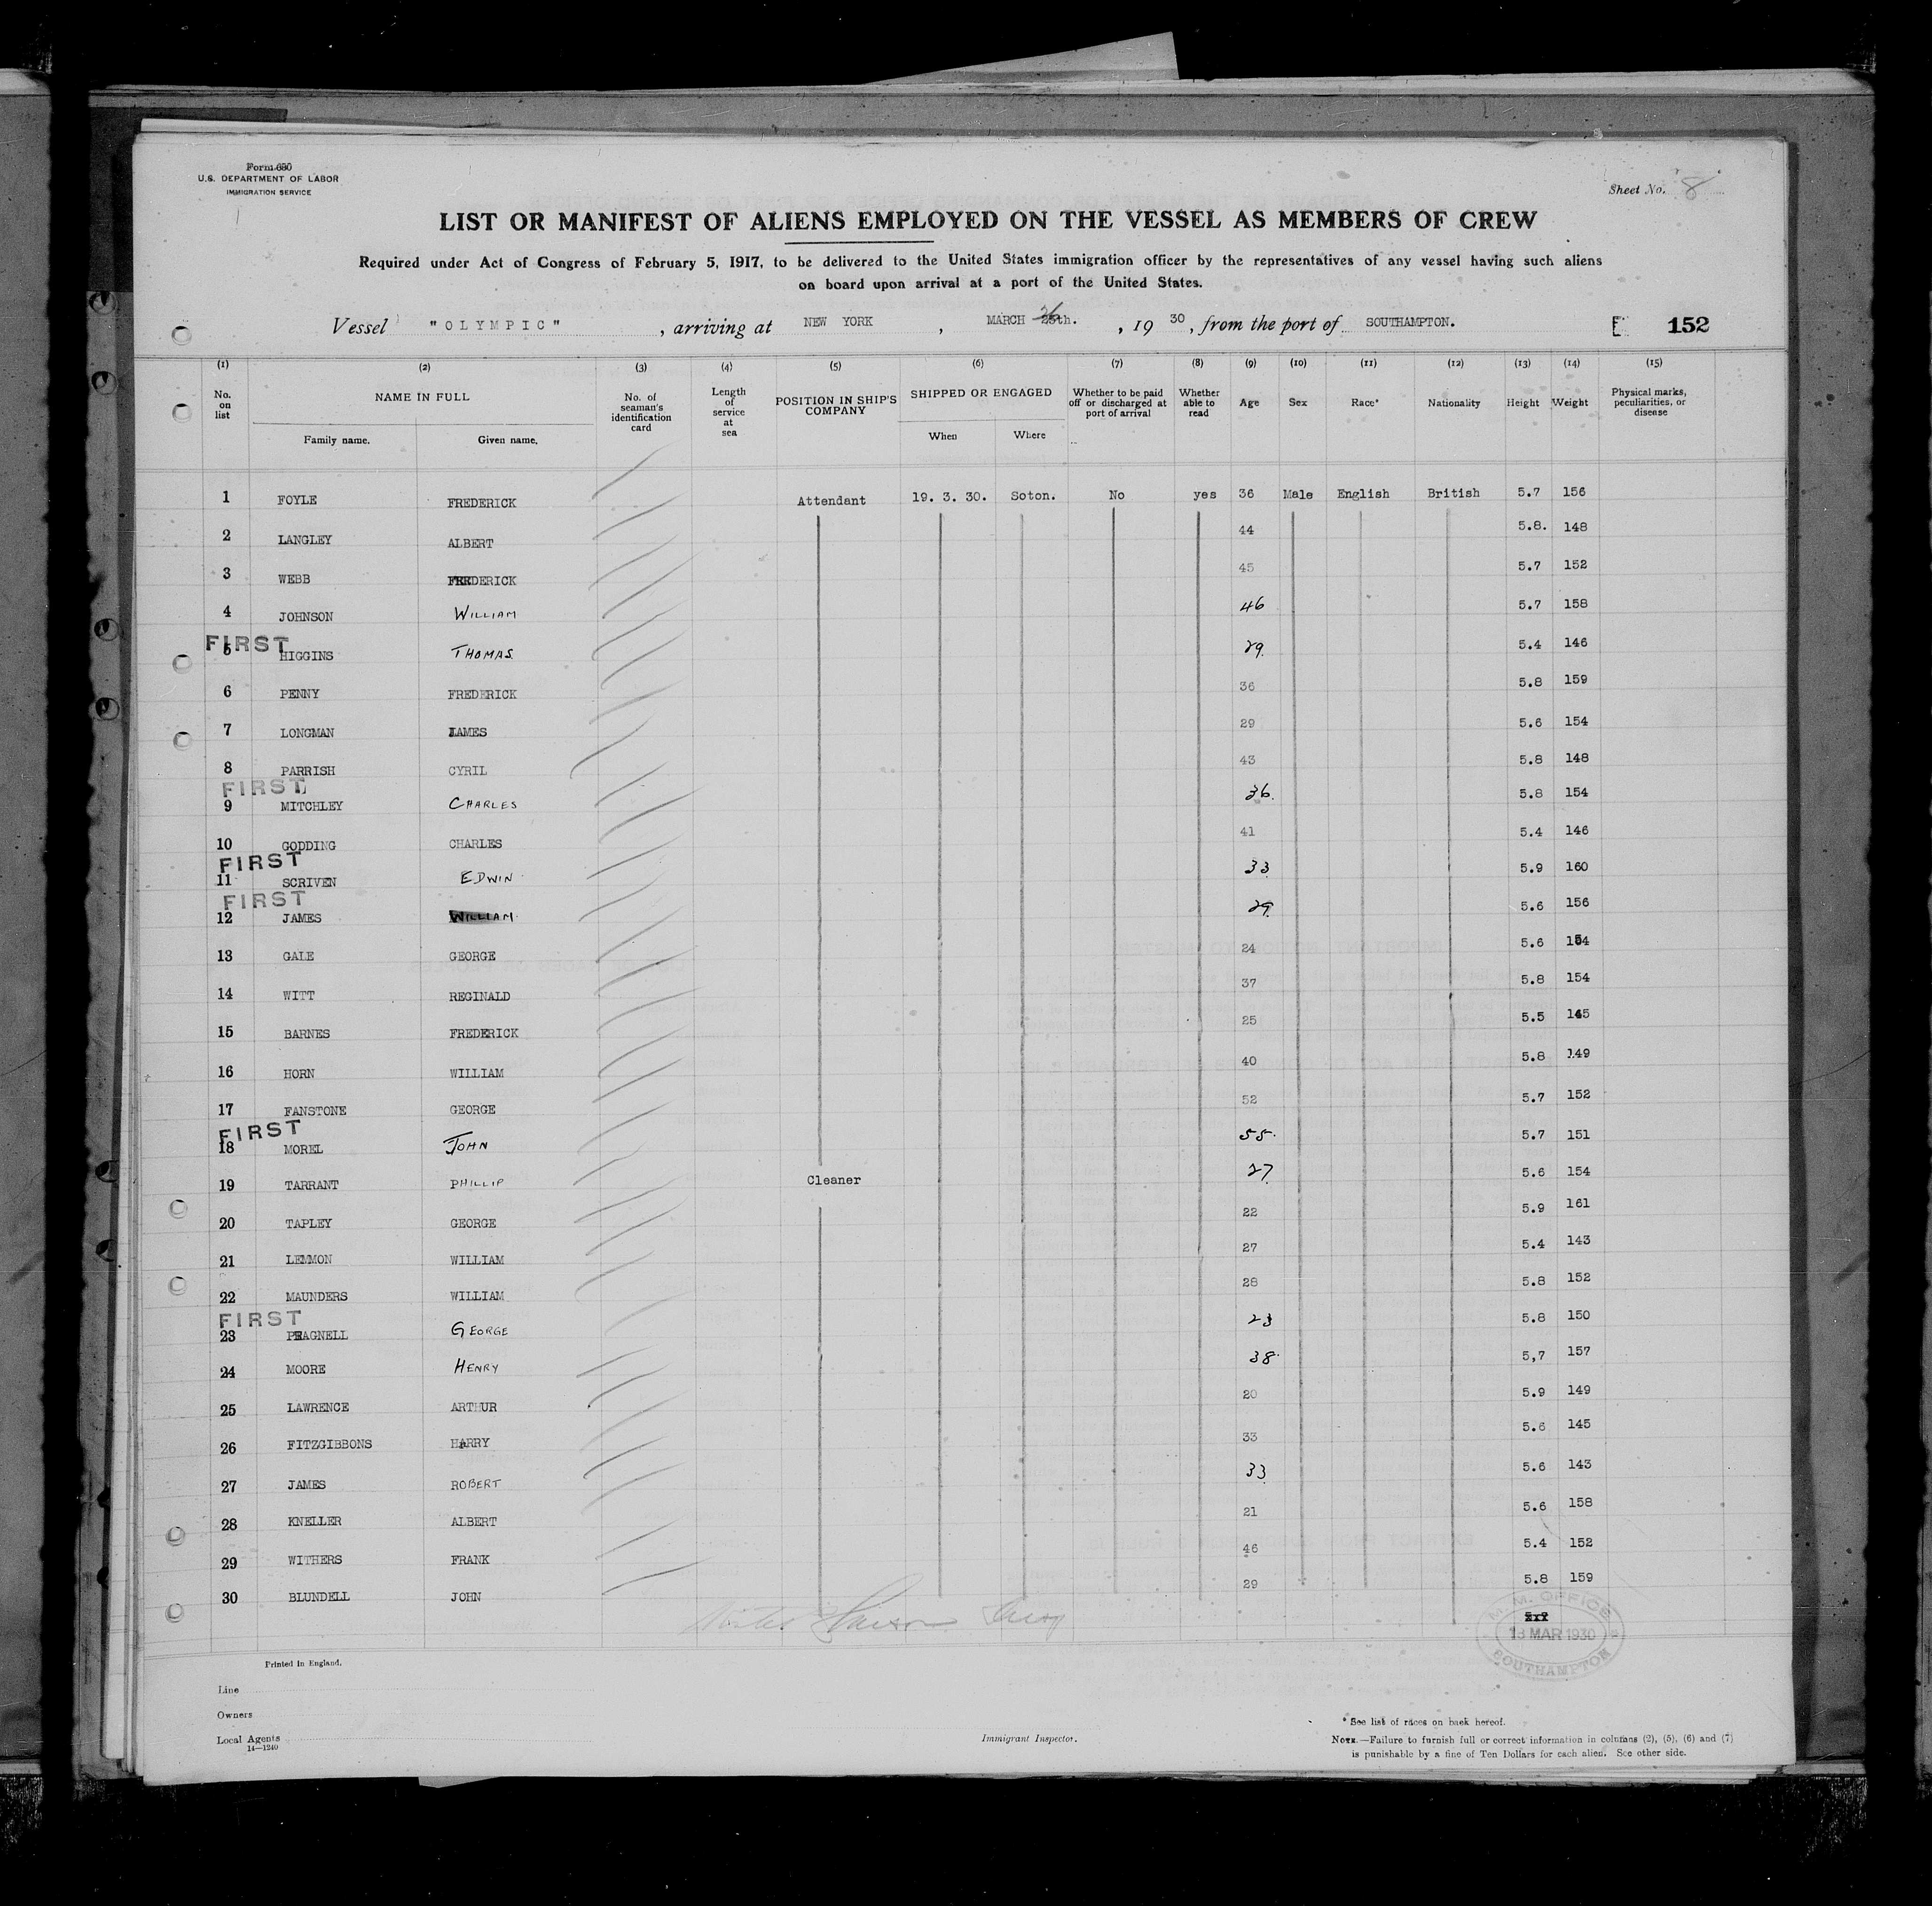 Form 680
U.S. DEPARTMENT OF LABOR
IMMIGRATION SERVICE
Sheet No. 8
LIST OR MANIFEST OF ALIENS EMPLOYED ON THE VESSEL AS MEMBERS OF CREW
Required under Act of Congress of February 5, 1917, to be delivered to the United States immigration officer by the representatives of any vessel having such aliens
on board upon arrival at a port of the United States.
Vessel "OLYMPIC", arriving at NEW YORK, MARCH 26th., 1930, from the port of SOUTHAMPTON. 152
(1) (2) (3) (4) (5) (6) (7) (8) (9) (10) (11) (12) (13) (14) (15)
No. on list NAME IN FULL Family name. Given name. No. of seaman's identification card Length of service at sea POSITION IN SHIP'S COMPANY SHIPPED OR ENGAGED When Where Whether to be paid off or discharged at port of arrival Whether able to read Age Sex Race* Nationality Height Weight Physical marks, peculiarities, or disease
1 FOYLE FREDERICK Attendant 19. 3. 30. Soton. No yes 36 Male English British 5.7 156
2 LANGLEY ALBERT 44 5.8. 148
3 WEBB FREDERICK 45 5.7 152
4 JOHNSON WILLIAM 46 5.7 158
FIRST
5 HIGGINS THOMAS. 29. 5.4 146
6 PENNY FREDERICK 36 5.8 159
7 LONGMAN JAMES 29 5.6 154
8 PARRISH CYRIL 43 5.8 148
FIRST
9 MITCHLEY CHARLES 36. 5.8 154
10 GODDING CHARLES 41 5.4 146
FIRST
11 SCRIVEN EDWIN 33 5.9 160
FIRST
12 JAMES WILLIAM 29 5.6 156
13 GALE GEORGE 24 5.6 154
14 WITT REGINALD 37 5.8 154
15 BARNES FREDERICK 25 5.5 145
16 HORN WILLIAM 40 5.8 149
17 FANSTONE GEORGE 52 5.7 152
FIRST
18 MOREL JOHN 55. 5.7 151
19 TARRANT PHILLIP Cleaner 27 5.6 154
20 TAPLEY GEORGE 22 5.9 161
21 LEMMON WILLIAM 27 5.4 143
22 MAUNDERS WILLIAM 28 5.8 152
FIRST
23 PRAGNELL GEORGE 23 5.8 150
24 MOORE HENRY 38. 5,7 157
25 LAWRENCE ARTHUR 20 5.9 149
26 FITZGIBBONS HARRY 33 5.6 145
27 JAMES ROBERT 33 5.6 143
28 KNELLER ALBERT 21 5.6 158
29 WITHERS FRANK 46 5.4 152
30 BLUNDELL JOHN 29 5.8 159
M.M. OFFICE
18 MAR 1930
SOUTHAMPTON
Printed in England.
Line
Owners
Local Agents
14—1240
Immigrant Inspector.
* See list of races on back hereof.
NOTE.—Failure to furnish full or correct information in columns (2), (5), (6) and (7)
is punishable by a fine of Ten Dollars for each alien. See other side.